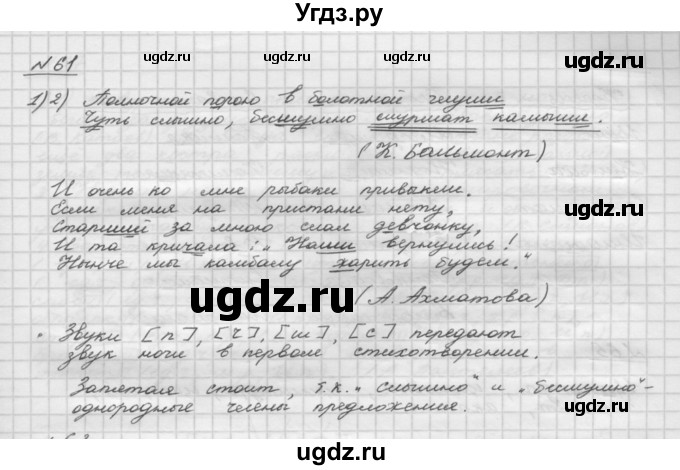 Угдз.ру
№61
1)2) Полночной порою в болотной глуши
Чуть слышно, бесшумно шуршат камыши.
(К. Бальмонт)
И очень ко мне рыбаки привыкли.
Если меня на пристани нету,
Старший за мною слал девчонку,
И та кричала: „Наши вернулись!
Нынче мы камбалу жарить будем."
(А. Ахматова)
Звуки [п], [ч], [ш], [с] передают
звук ночи в первом стихотворении.
Запятая стоит, т.к. „слышно" и „бесшумно"-
однородные члены предложения.
ugdz.ru
ugdz.ru
ugdz.ru
ugdz.ru
ugdz.ru
ugdz.ru
ugdz.ru
ugdz.ru
ugdz.ru